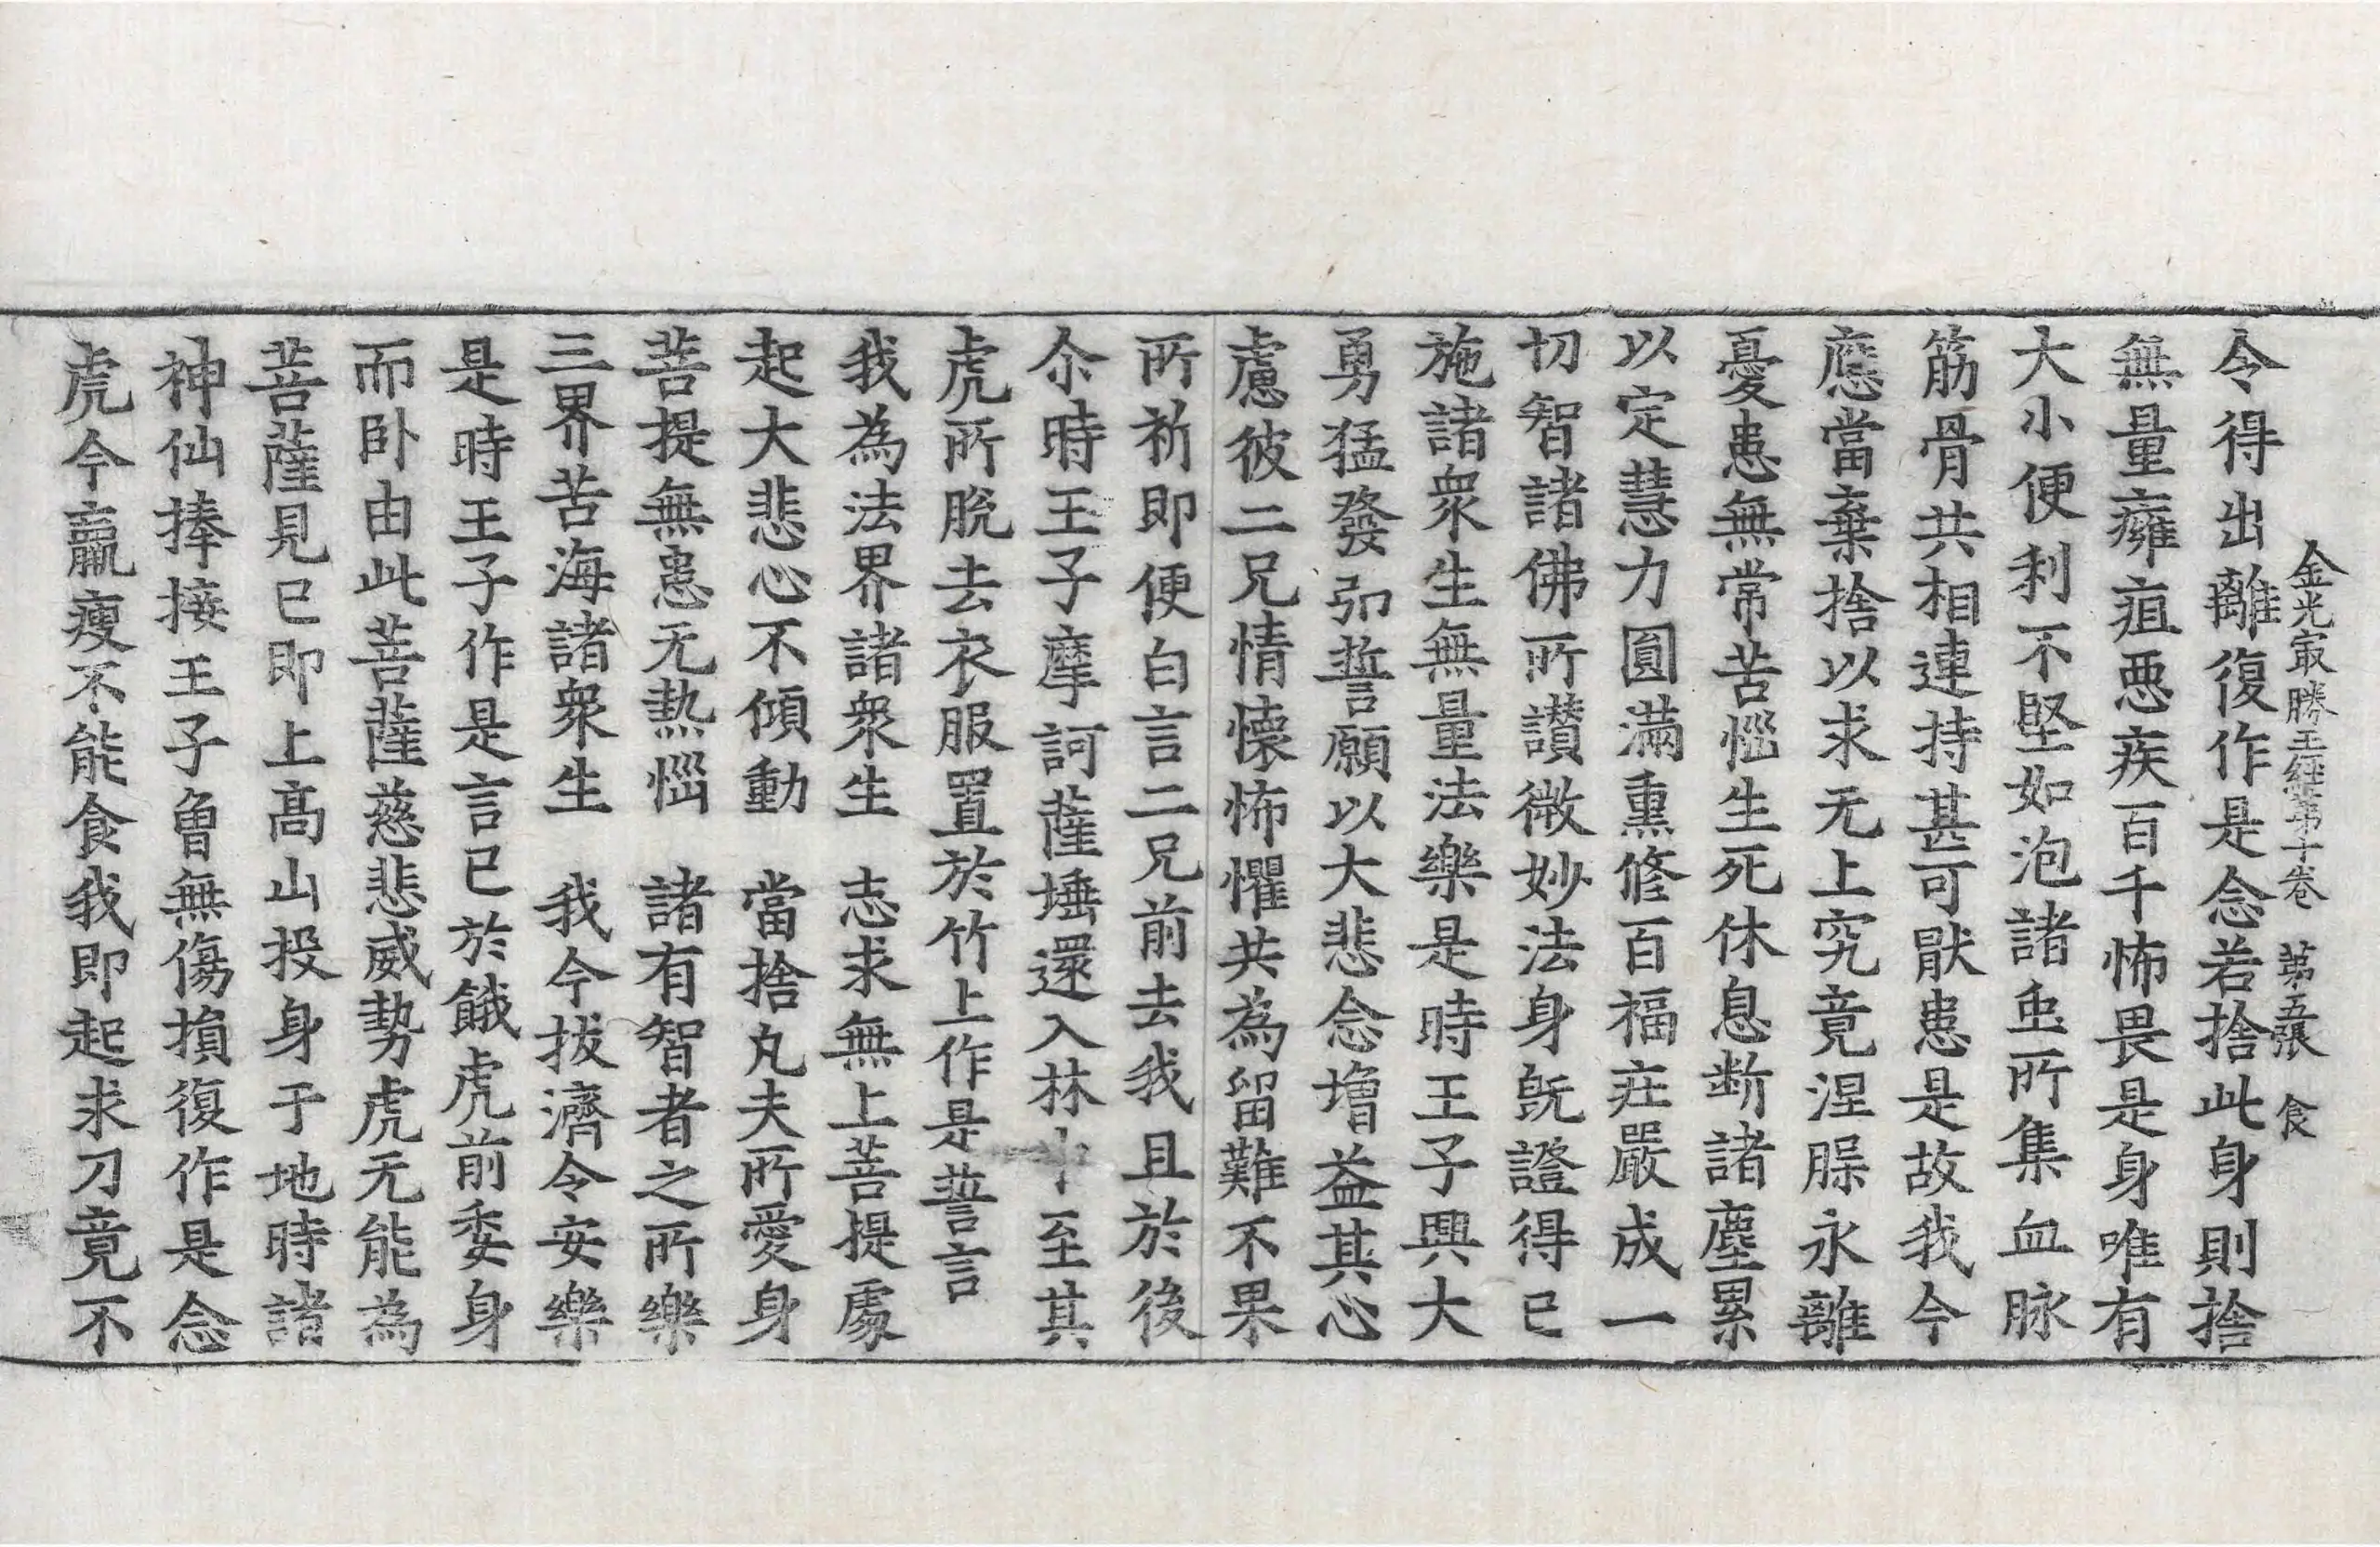 金光㝡勝王經第十卷　第五張　食
令得出離復作是念若捨此身則捨
無量癰疽悪疾百千怖畏是身唯有
大小便利不堅如泡諸虫所集血脉
筋骨共相連持甚可猒患是故我今
應當棄捨以求无上究竟涅槃永離
憂患無常苦惱生死休息断諸塵累
以定慧力圓滿熏修百福莊嚴成一
切智諸佛所讃微妙法身旣證得已
施諸衆生無量法樂是時王子興大
勇猛發弘誓願以大悲念增益其心
慮彼二兄情懷怖懼共為留難不果
所祈即便白言二兄前去我且於後
尒時王子摩訶薩埵還入林中至其
虎所脫去衣服置於竹上作是誓言
我為法界諸衆生　志求無上菩提處
起大悲心不傾動　當捨凡夫所愛身
菩提無患无熱惱　諸有智者之所樂
三界苦海諸衆生　我今拔濟令安樂
是時王子作是言已於餓虎前委身
而卧由此菩薩慈悲威勢虎无能為
菩薩見已即上高山投身于地時諸
神仙捧接王子曾無傷損復作是念
虎今羸瘦不能食我即起求刀竟不